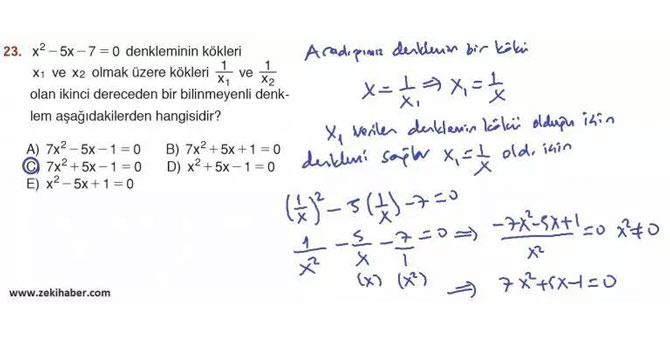 23. x² – 5x – 7 = 0 denkleminin kökleri
x₁ ve x₂ olmak üzere kökleri 1/x₁ ve 1/x₂
olan ikinci dereceden bir bilinmeyenli denk-
lem aşağıdakilerden hangisidir?
A) 7x² – 5x – 1 = 0 B) 7x² + 5x + 1 = 0
C) 7x² + 5x – 1 = 0 D) x² + 5x – 1 = 0
E) x² – 5x + 1 = 0
www.zekihaber.com
Aradığımız denklemin bir kökü
x = 1/x₁ ⇒ x₁ = 1/x
x₁ verilen denklemin kökü olduğu için
denklemi sağlar x₁ = 1/x old. için
(1/x)² – 5(1/x) – 7 = 0
1/x² – 5/x – 7/1 = 0 ⇒ (–7x² – 5x + 1)/x² = 0 x² ≠ 0
(x) (x²) ⇒ 7x² + 5x – 1 = 0